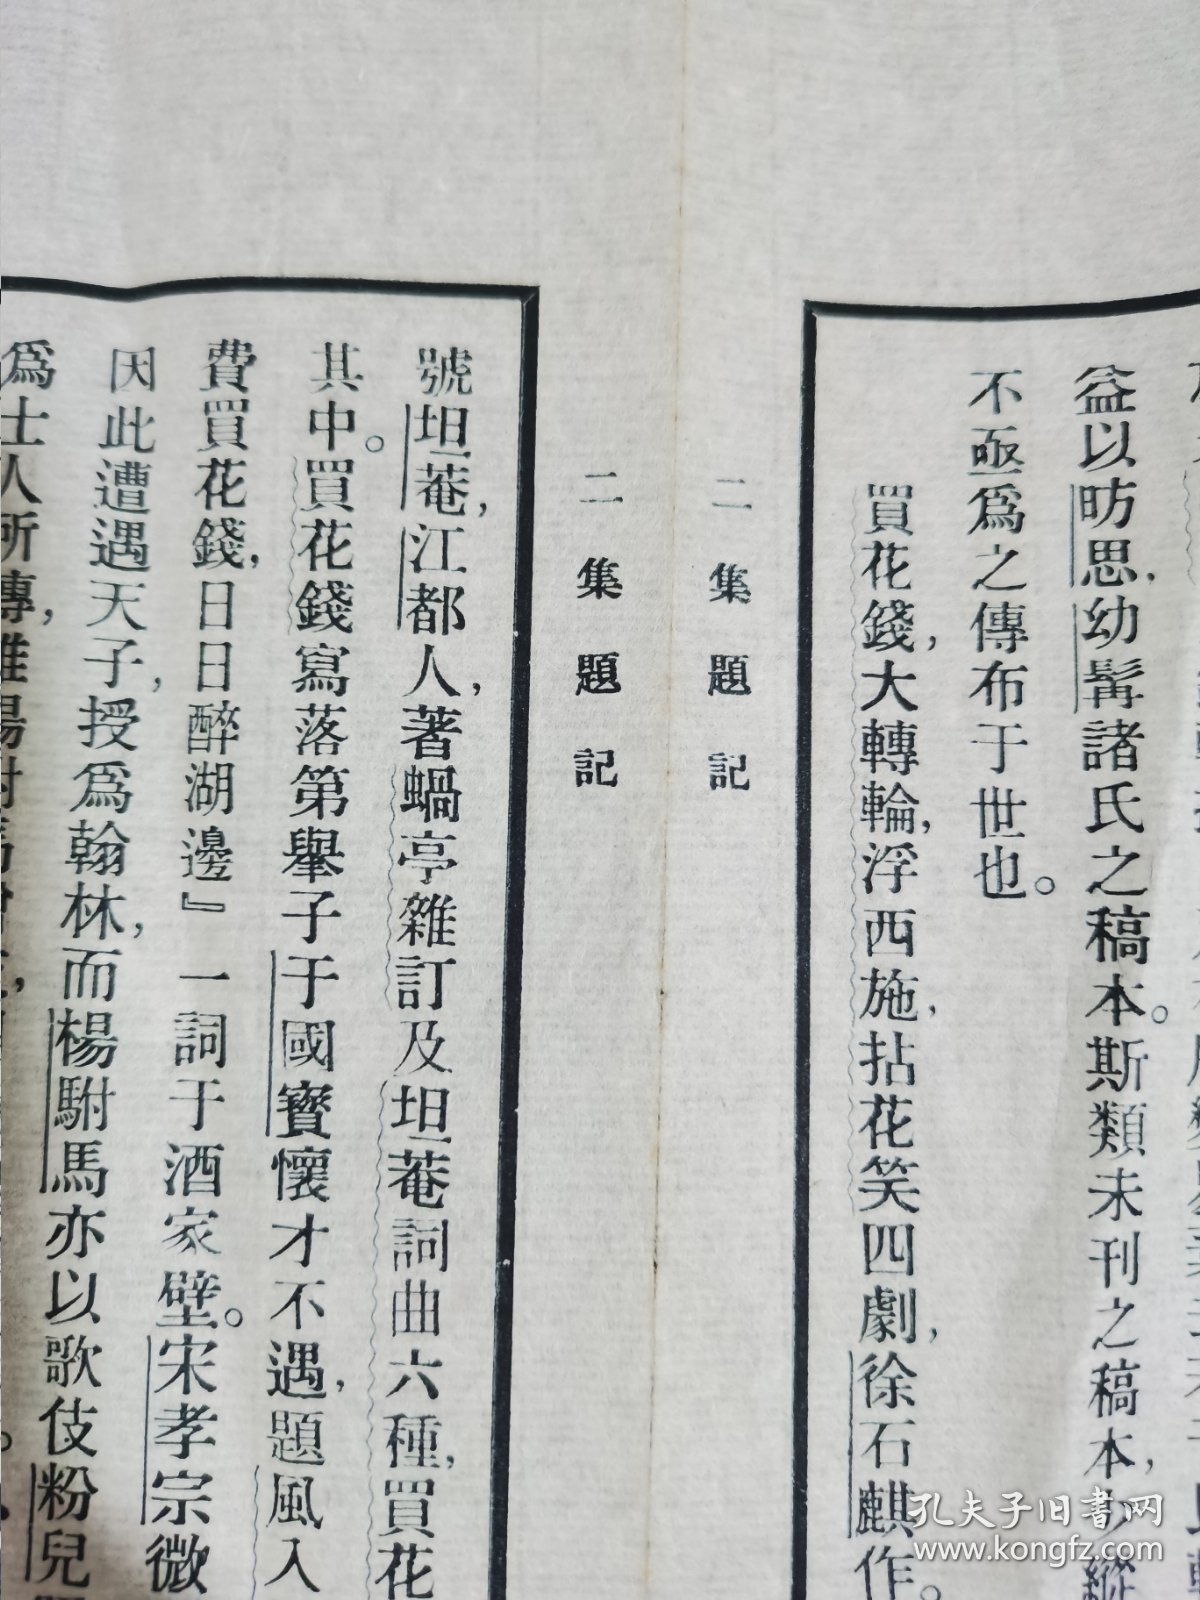 益以昉思，幼髯諸氏之稿本。斯類未刊之稿本，少縱
不亟爲之傳布于世也。
買花錢，大轉輪，浮西施，拈花笑四劇，徐石麒作。
二集題記
二集題記
號坦菴，江都人，著蝸亭雜訂及坦菴詞曲六種，買花
其中。買花錢寫落第舉子于國寶懷才不遇，題風入
費買花錢，日日醉湖邊』一詞于酒家壁。宋孝宗微
因此遭遇天子，授爲翰林，而楊駙馬亦以歌伎粉兒
爲士人所傳，
孔夫子旧书网
www.kongfz.com